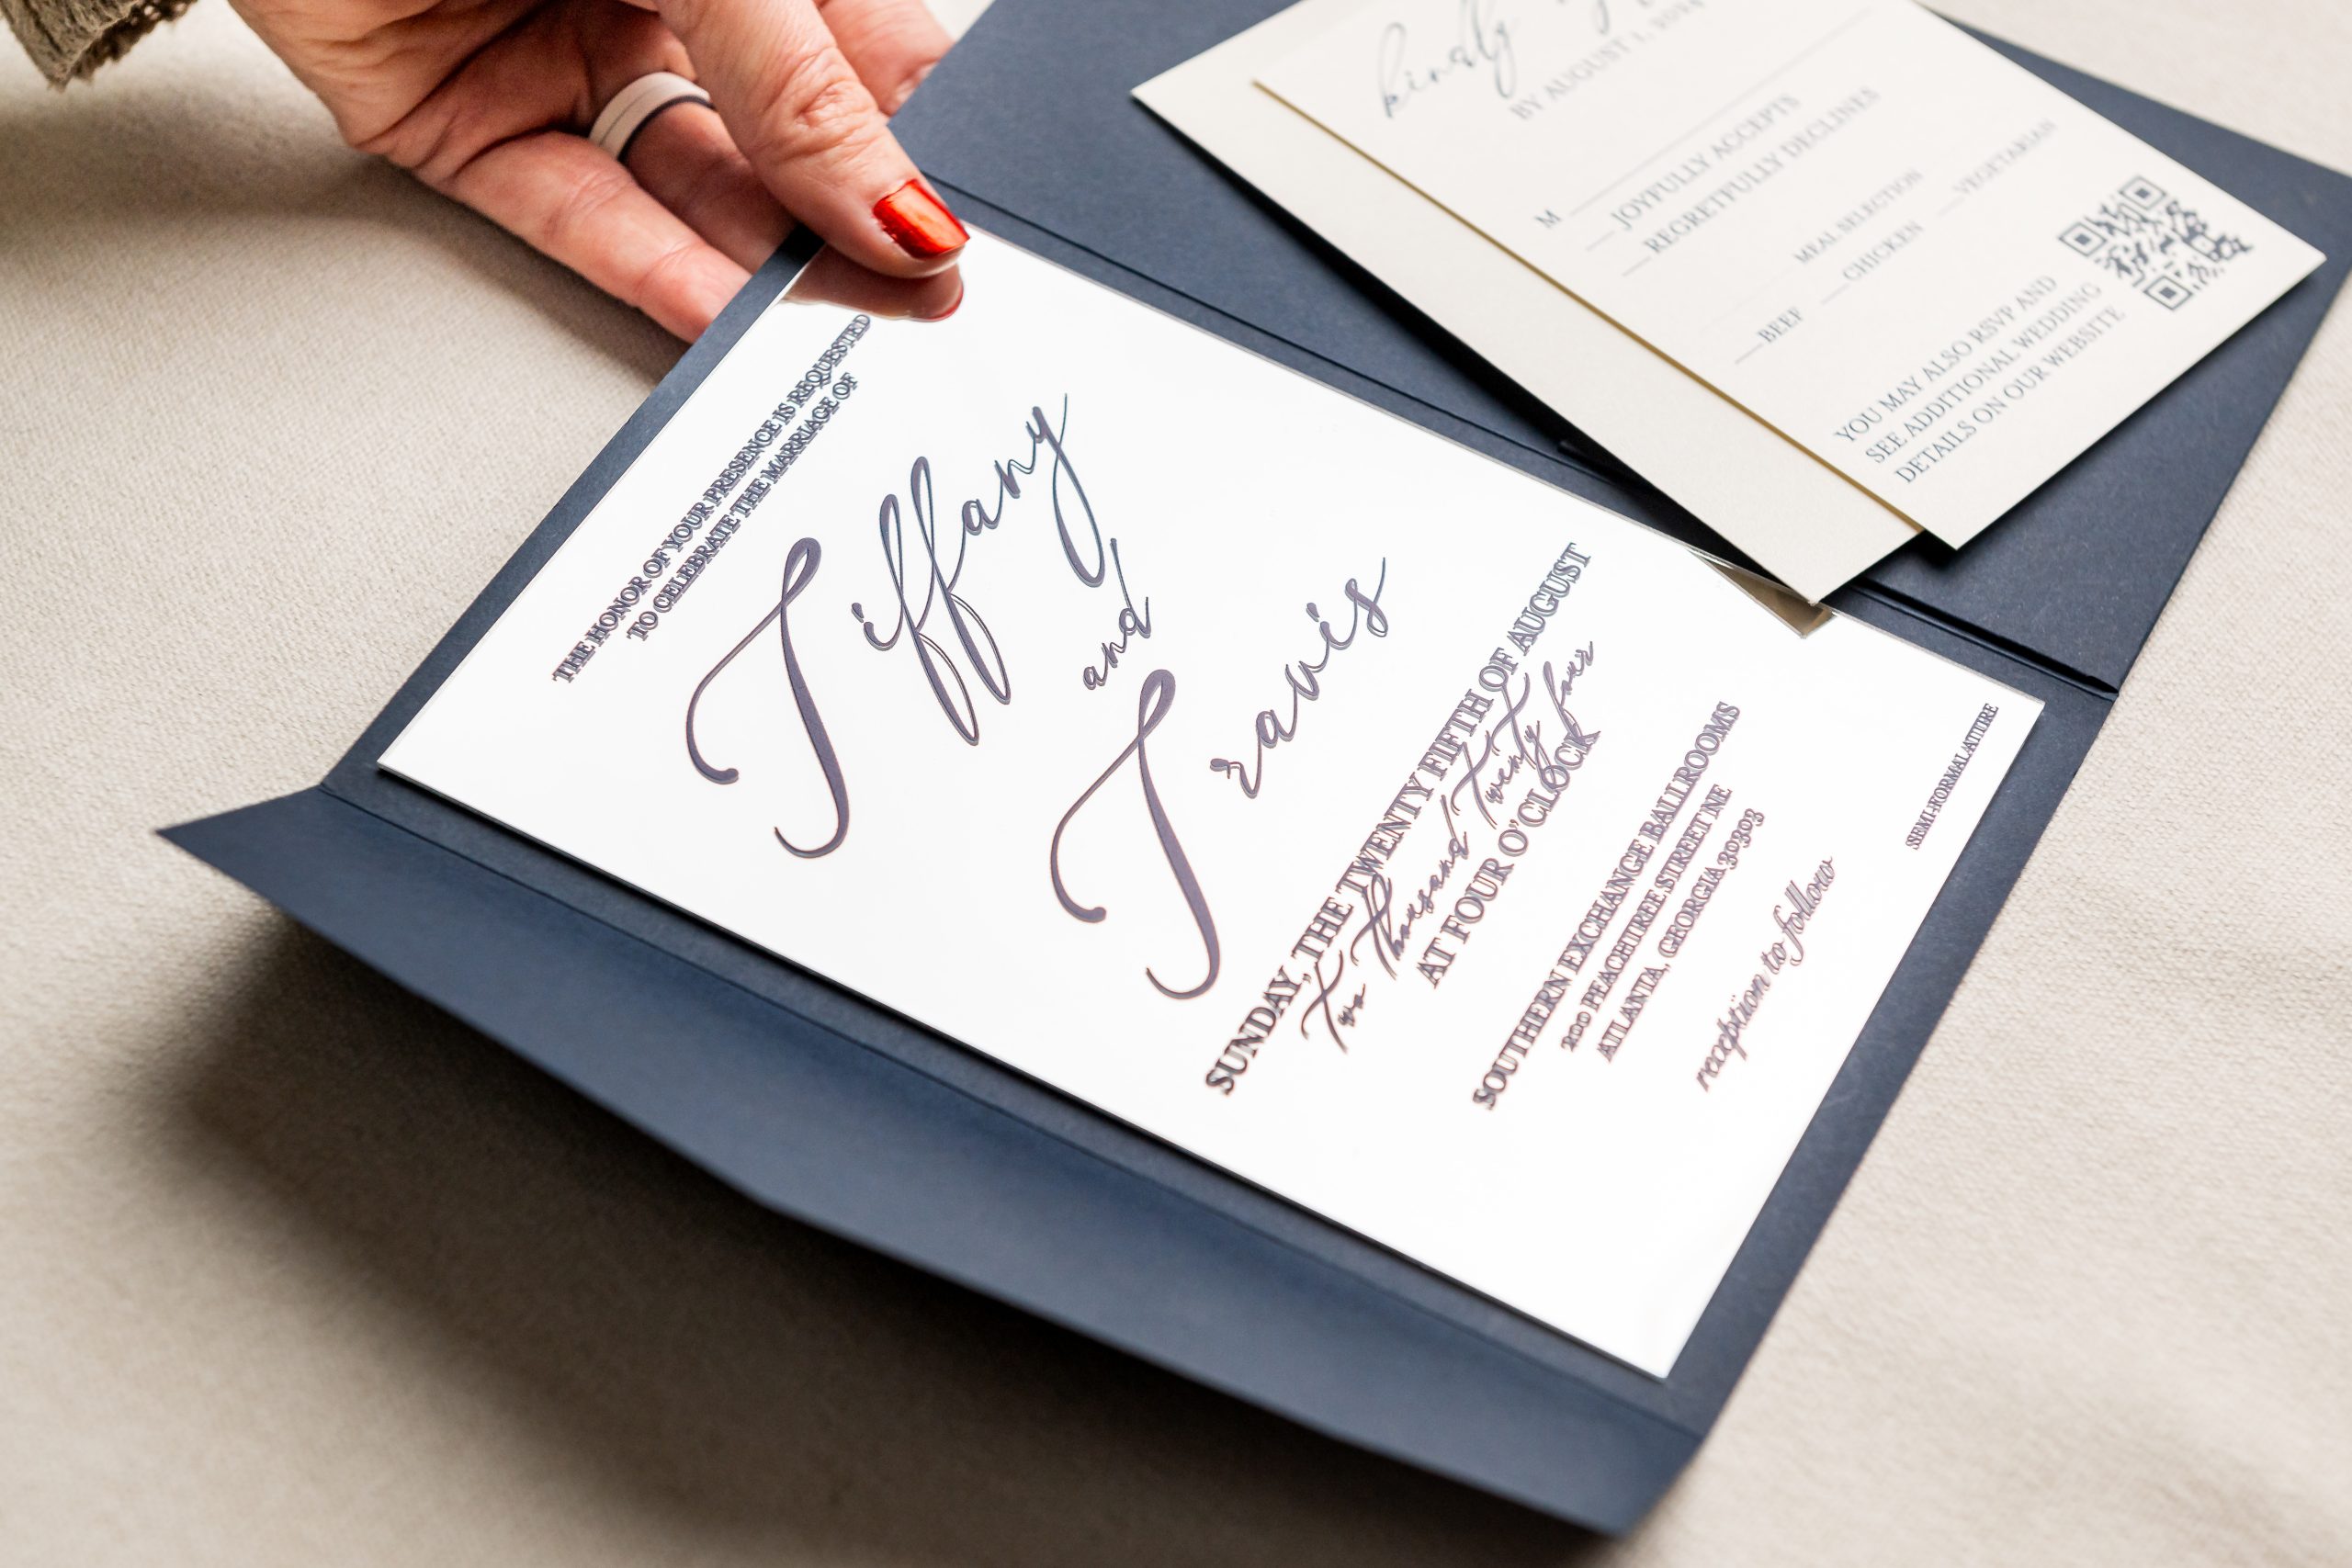 THE HONOR OF YOUR PRESENCE IS REQUESTED
TO CELEBRATE THE MARRIAGE OF
Tiffany
and
Travis
SUNDAY, THE TWENTY FIFTH OF AUGUST
Two Thousand Twenty four
AT FOUR O'CLOCK
SOUTHERN EXCHANGE BALLROOMS
200 PEACHTREE STREET NE
ATLANTA, GEORGIA 30303
reception to follow
SEMI-FORMAL ATTIRE
kindly
BY AUGUST 1, 2024
M
JOYFULLY ACCEPTS
REGRETFULLY DECLINES
MEAL SELECTION
BEEF CHICKEN VEGETARIAN
YOU MAY ALSO RSVP AND
SEE ADDITIONAL WEDDING
DETAILS ON OUR WEBSITE